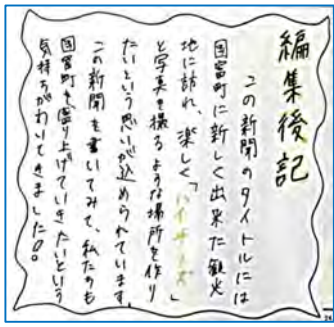 編集後記
この新聞のタイトルには
国富町に新しく出来た観光
地に訪れ、楽しく「ハイチーズ」
と写真を撮るような場所を作り
たいという思いが込められています。
この新聞を書いてみて、私たちも
国富町を盛り上げていきたいという
気持ちがわいてきました!。